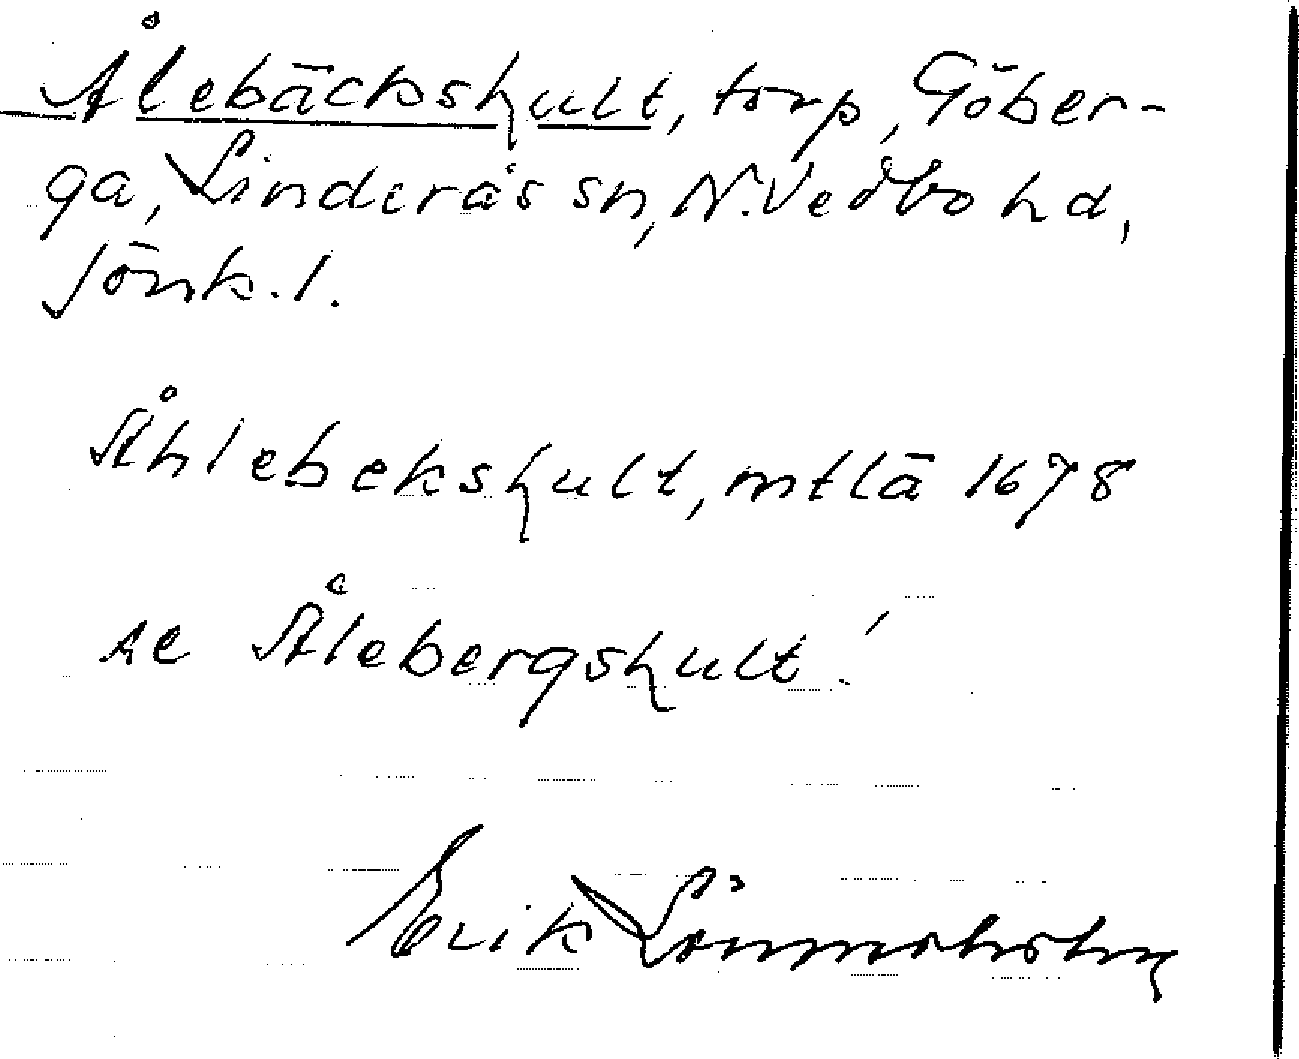 Ålebäckshult, torp, Göber-
ga, Linderås sn, N. Vedbo hd,
Jönk. l.
Åhlebekshult, mtlä 1678
se Ålebergshult!
Erik